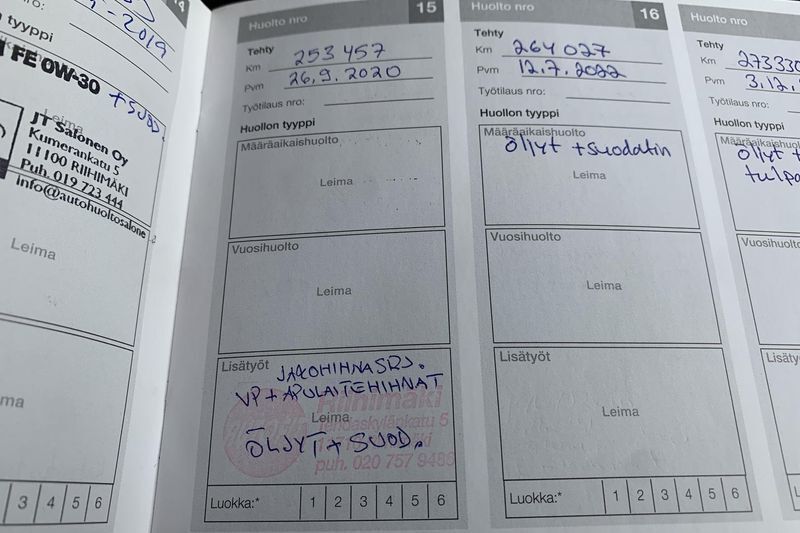 14
-2019
tyyppi
FE 0W-30
+ SUOD
Leima
JT Salonen Oy
Kumerankatu 5
11100 RIIHIMÄKI
Puh. 019 723 444
info@autohuoltosalone
Leima
3 4 5 6
Huolto nro 15
Tehty
Km 253 457
Pvm 26.9.2020
Työtilaus nro:
Huollon tyyppi
Määräaikaishuolto
Leima
Vuosihuolto
Leima
Lisätyöt
JAKOHIHNASRJ.
VP + APULAITEHIHNAT
Riihimäki
Leima
ÖLJYT + SUOD.
puh. 020 757 9486
Luokka:* 1 2 3 4 5 6
Huolto nro 16
Tehty
Km 264 027
Pvm 12.7.2022
Työtilaus nro:
Huollon tyyppi
Määräaikaishuolto
öljyt + suodatin
Leima
Vuosihuolto
Leima
Lisätyöt
Leima
Luokka:* 1 2 3 4 5 6
Huolto nro
Tehty
Km 273330
Pvm 3.12.
Työtilaus nro:
Huollon tyyppi
Määräaikaishuol
öljyt +
tulpa
Vuosihuolto
Lisätyöt
Luokka:*